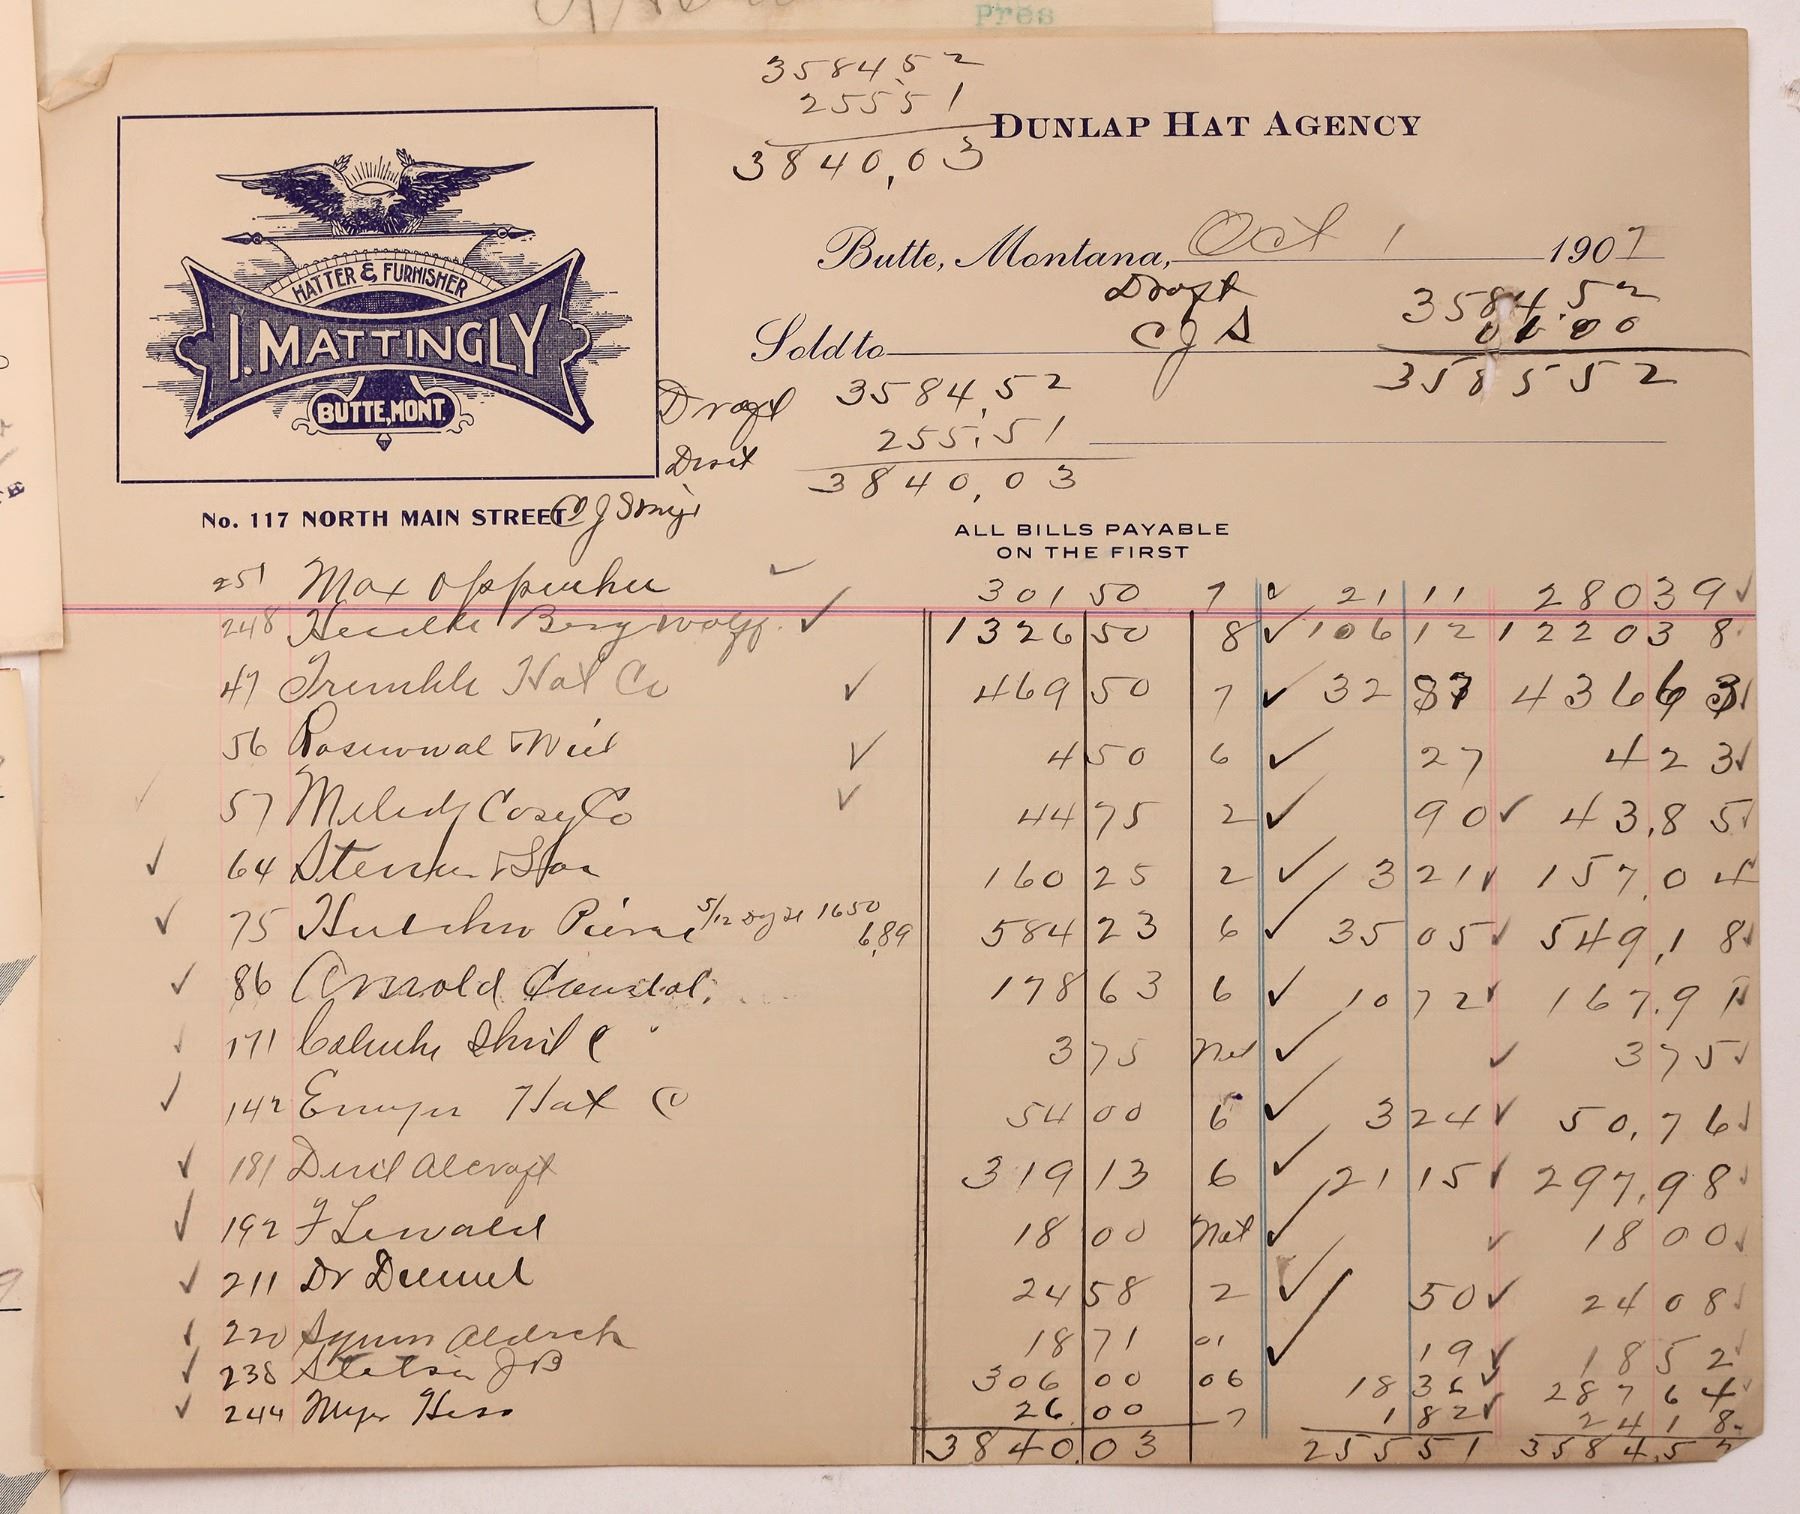 Pres
3584.52
255.51
3840.03
DUNLAP HAT AGENCY
HATTER & FURNISHER
I. MATTINGLY
BUTTE, MONT.
Butte, Montana, Oct 1 1907
Draft 3584.52
Sold to C J S 01 00
3585 52
Draft 3584.52
255.51
3840.03
No. 117 NORTH MAIN STREET C J
ALL BILLS PAYABLE
ON THE FIRST
251 Max 301 50 7 21 11 280 39
248 Berg Wolff 1326 50 8 106 12 1220 38
47 Trimble Hat Co 469 50 7 32 87 436 63
56 4 50 6 27 4 23
57 Co 44 75 2 90 43.85
64 160 25 2 3 21 157.04
75 Pierce 5/12 16 50 584 23 6 35 05 549.18
6.89
86 Arnold 178 63 6 10 72 167.91
171 3 75 Net 3 75
142 Hat Co 54 00 6 3 24 50.76
181 319 13 6 21 15 297.98
192 F Lewald 18 00 Net 18 00
211 Dr 24 58 2 50 24 08
220 18 71 01 19 18 52
238 Stetson J B 306 00 06 18 36 287 64
244 Hess 26 00 7 1 82 24 18
3840.03 255 51 3584.52